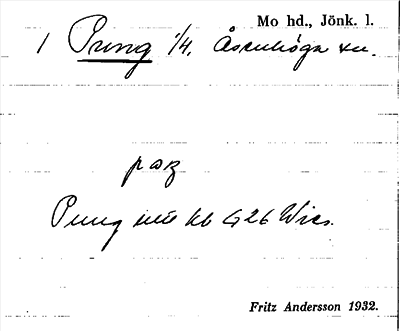 Mo hd., Jönk. l.
1 Pung 1/4. Åsenhöga sn.
paz
Pung G26 Wics.
Fritz Andersson 1932.